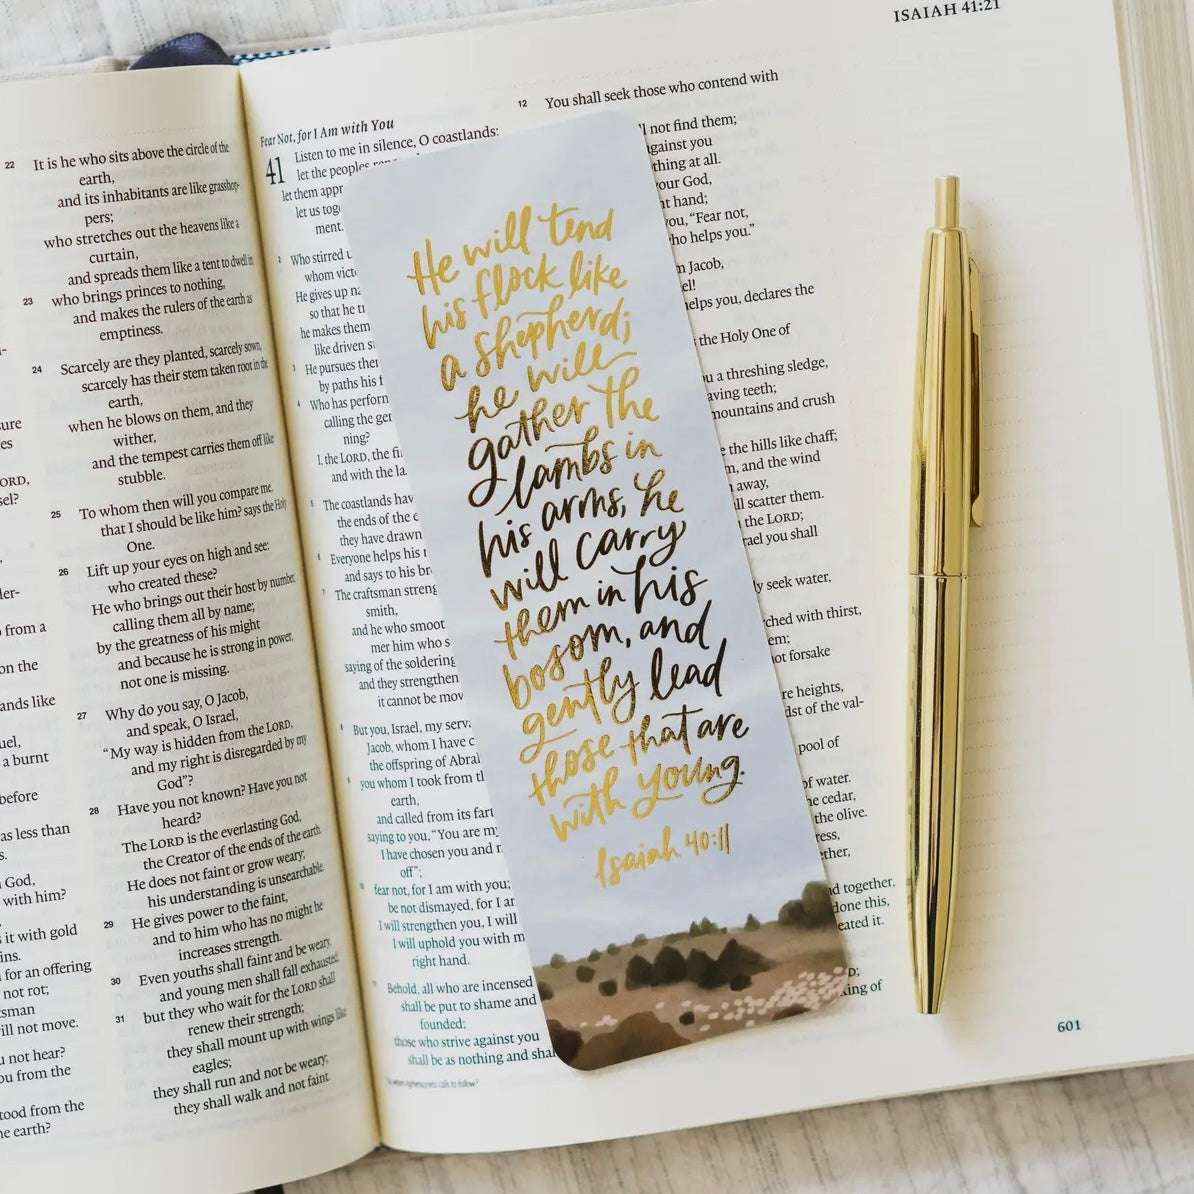 ISAIAH 41:21
22 It is he who sits above the circle of the
earth,
and its inhabitants are like grasshop-
pers;
who stretches out the heavens like a
curtain,
and spreads them like a tent to dwell in
23 who brings princes to nothing,
and makes the rulers of the earth as
emptiness.
24 Scarcely are they planted, scarcely sown,
scarcely has their stem taken root in the
earth,
when he blows on them, and they
wither,
and the tempest carries them off like
stubble.
25 To whom then will you compare me,
that I should be like him? says the Holy
One.
26 Lift up your eyes on high and see:
who created these?
He who brings out their host by number,
calling them all by name;
by the greatness of his might
and because he is strong in power,
not one is missing.
27 Why do you say, O Jacob,
and speak, O Israel,
"My way is hidden from the LORD,
and my right is disregarded by my
God"?
28 Have you not known? Have you not
heard?
The LORD is the everlasting God,
the Creator of the ends of the earth.
He does not faint or grow weary;
his understanding is unsearchable.
29 He gives power to the faint,
and to him who has no might he
increases strength.
30 Even youths shall faint and be weary,
and young men shall fall exhausted
31 but they who wait for the LORD shall
renew their strength;
they shall mount up with wings like
eagles;
they shall run and not be weary;
they shall walk and not faint.
Fear Not, for I Am with You
41 Listen to me in silence, O coastlands:
let the peoples
let them
let us
ment.
2 Who stirred
whom
He gives up
so that he
he makes them
like driven
3 He pursues
by paths his
4 Who has
calling the
ning?
I, the LORD, the
and with the
5 The coastlands
the ends of the
they have drawn
6 Everyone helps his
and says to his
7 The craftsman
smith,
and he who
him who
saying of the soldering
and they strengthen
it cannot be
8 But you, Israel, my
Jacob, whom I have
the offspring of
9 you whom I took from
earth,
and called from its
saying to you, "You are my
I have chosen you and
off";
10 fear not, for I am with you;
be not dismayed, for I
I will strengthen you, I will
I will uphold you with
right hand.
11 Behold, all who are incensed
shall be put to shame and
founded;
those who strive against you
shall be as nothing and
He will tend
his flock like
a shepherd;
he will
gather the
lambs in
his arms, he
will carry
them in his
bosom, and
gently lead
those that are
with young.
Isaiah 40:11
12 You shall seek those who contend with
not find them;
against you
at all.
your God,
hand;
you, "Fear not,
helps you."
Jacob,
helps you, declares the
the Holy One of
a threshing sledge,
teeth;
mountains and crush
the hills like chaff;
and the wind
away,
scatter them.
the LORD;
you shall
seek water,
with thirst,
not forsake
heights,
of the val-
pool of
of water.
cedar,
the olive.
together.
done this,
of
601
sure
from a
on the
like
a burnt
before
as less than
God,
with him?
it with gold
for an offering
not rot;
not move.
not hear?
from the
from the
earth?